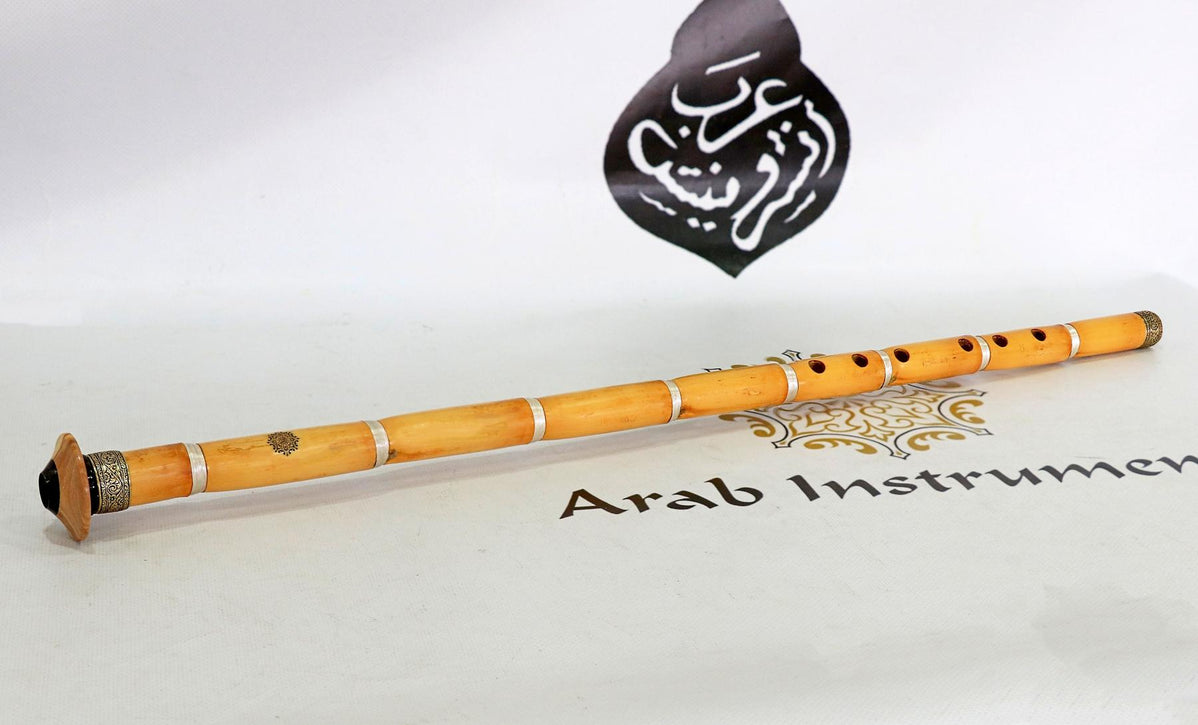 عرب
انسترومنتس
Arab Instrumen